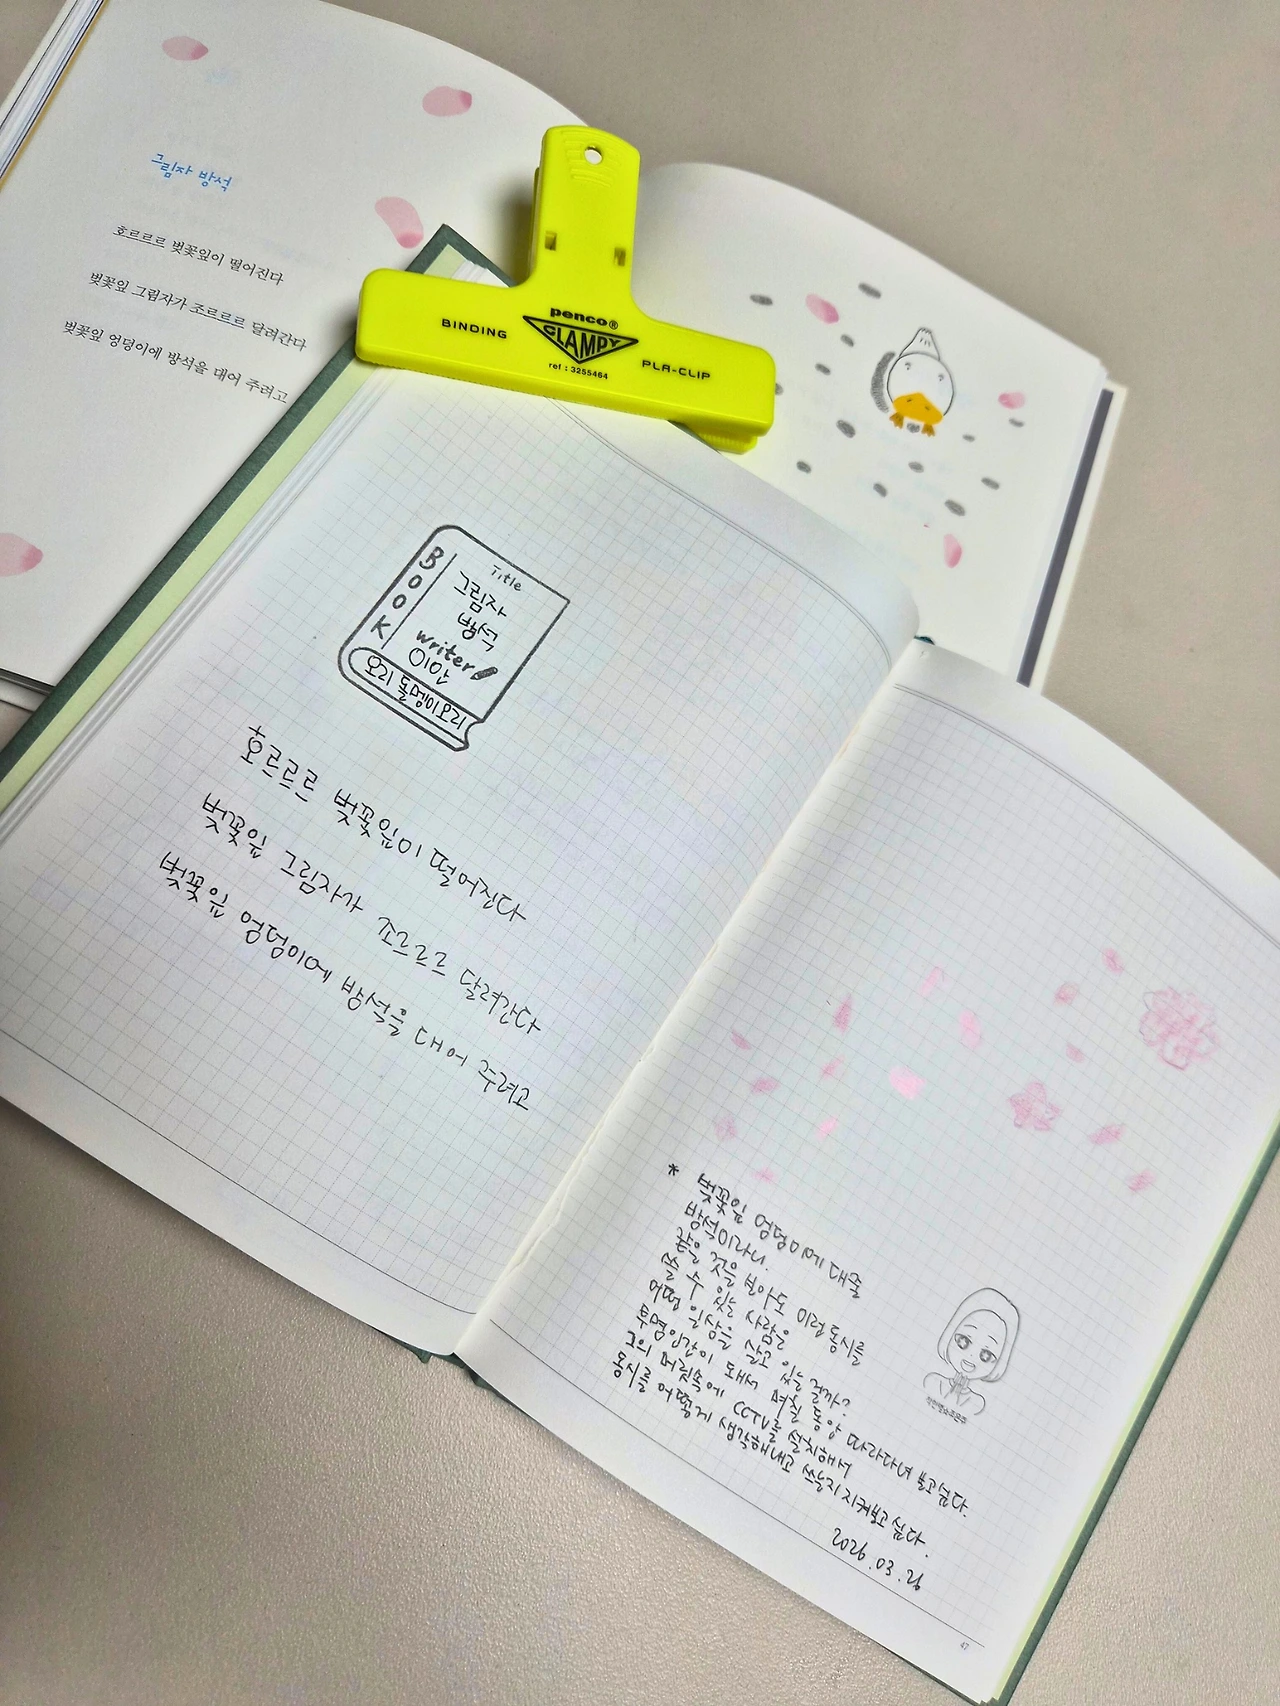 그림자 방석
호르르르 벚꽃잎이 떨어진다
벚꽃잎 그림자가 조르르르 달려간다
벚꽃잎 엉덩이에 방석을 대어 주려고
penco®
CLAMPY
BINDING
PLA-CLIP
ref : 3255464
BOOK
Title
그림자
방석
writer
이안
오리 돌멩이 오리
호르르르 벚꽃잎이 떨어진다
벚꽃잎 그림자가 조르르르 달려간다
벚꽃잎 엉덩이에 방석을 대어 주려고
* 벚꽃잎 엉덩이에 대줄
방석이라니.
같은 것을 보아도 이런 동시를
쓸 수 있는 사람은
어떤 일상을 살고 있는 걸까?
투명인간이 돼서 며칠 동안 따라다녀 보고싶다.
그의 머릿속에 CCTV를 설치해서
동시를 어떻게 생각해내고 쓰는지 지켜보고 싶다.
2026.03.26
47